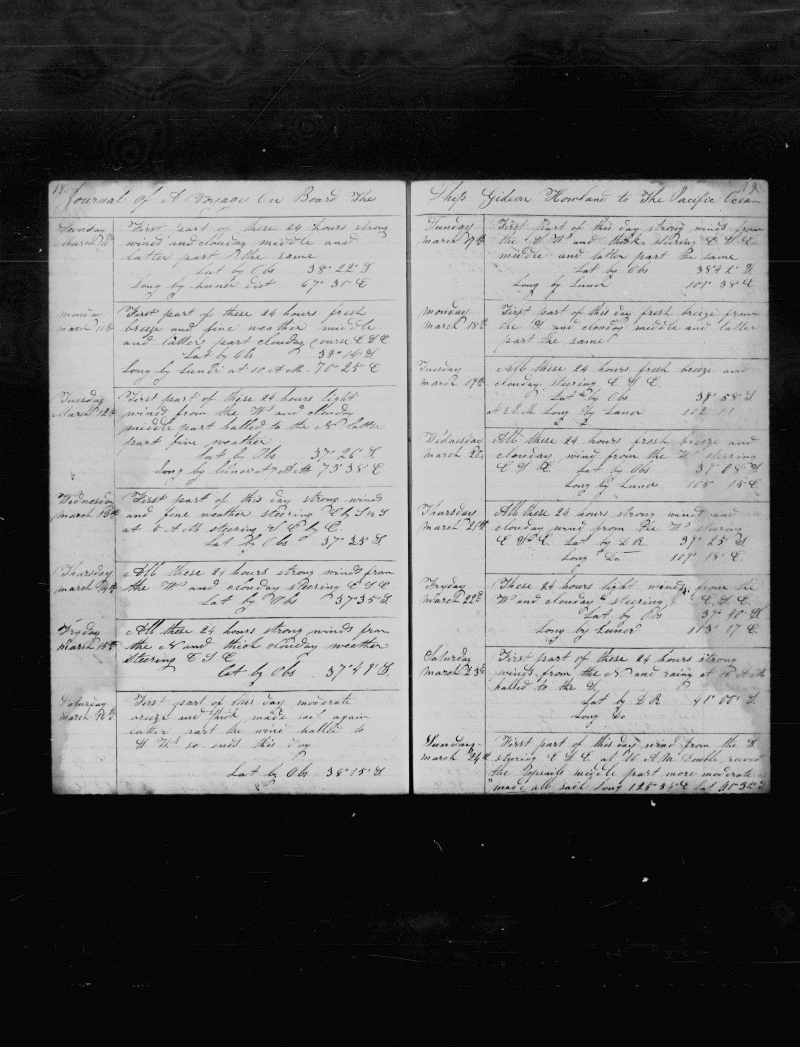 18
Journal of A Voyage On Board The
Sunday
March 10th
First part of these 24 hours strong
winds and clouday middle and
latter part the same
Lat by Obs 38° 22' S
Long by Luner dist 67° 30' E
Monday
March 11th
First part of these 24 hours fresh
breese and fine weather middle
and latter part clouday course E S E
Lat by Obs 38° 14' S
Long by Lunar at 10 A M 70° 25' E
Tuesday
March 12th
First part of these 24 hours light
winds from the W and clouday
middle part halled to the N latter
part fine weather
Lat by Obs 37° 26' S
Long by luner at 7 A M 73° 38' E
Wednesday
March 13th
First part of this day strong wind
and fine weather steering
at 6 A M steering S E by E
Lat by Obs 37° 25' S
Thursday
March 14th
All these 24 hours strong winds from
the W and clouday steering E S E
Lat by Obs 37° 35' S
Fryday
March 15th
All these 24 hours strong winds from
the N and thick clouday weather
steering E S E
Lat by Obs 37° 49' S
Saturday
March 16th
First part of this day moderate
breeze and thick made sail again
latter part the wind halled to
S W so ends this day
Lat by Obs 38° 15' S
19
Ship Gideon Howland to The Pacific Ocean
Sunday
March 17th
First part of this day strong winds from
the S W and thick steering E S E
middle and latter part the same
Lat by Obs
Long by Luner 101° 38' E
Monday
March 18th
First part of this day fresh breeze from
the S and clouday middle and latter
part the same
Tuesday
March 19th
All these 24 hours fresh breeze and
clouday steering E S E
Lat by Obs 38° 58' S
at 2 P. M Long by Luner 102
Wednesday
March 20
All these 24 hours fresh breeze and
clouday wind from the W steering
E S E Lat by Obs 37° 08' S
Long by Luner 105° 15' E
Thursday
March 21st
All these 24 hours strong winds and
clouday wind from the W steering
E S E Lat by D R. 37° 25' S
Long Do 107° 18' E
Fryday
March 22d
These 24 hours light winds from the
W and clouday steering E. S. E
Lat by Obs 37° 40' S
Long by Luner 17' E
Saturday
March 23d
First part of these 24 hours strong
winds from the N. and raing at 10 A M
halled to the S.
Lat by D R 41° 00' S.
Long Do
Sunday
March 24th
First part of this day wind from the S
steering E S E at 10 A M Double reeved
the Topsails middle part more moderate
made all sail Long 125° 34' E Lat 41° 32' S